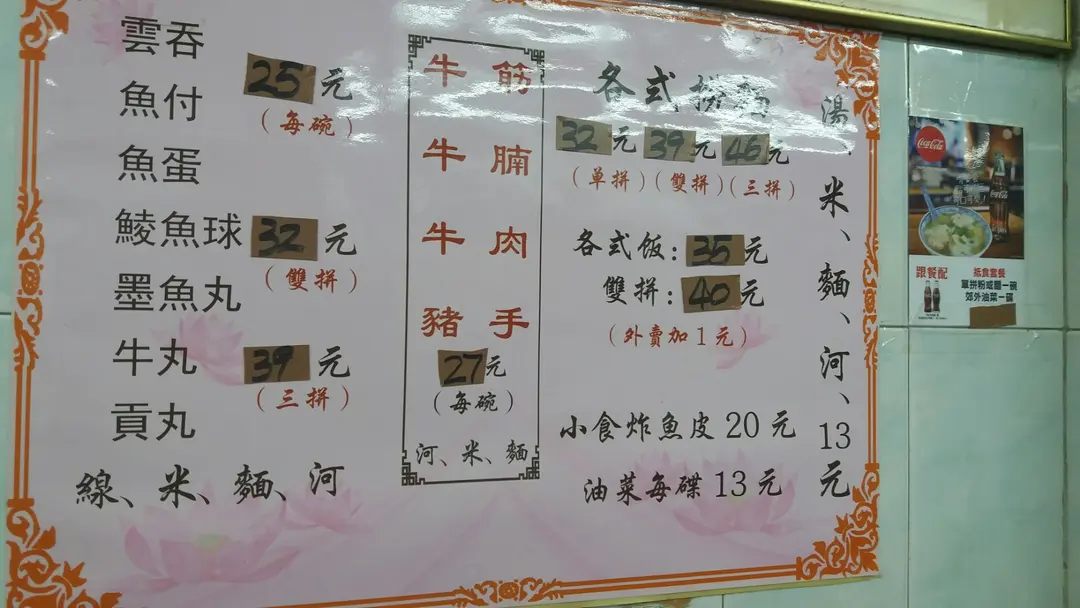 雲吞
魚付
魚蛋
鯪魚球
墨魚丸
牛丸
貢丸
25元
(每碗)
32元
(雙拼)
39元
(三拼)
線、米、麵、河
牛筋
牛腩
牛肉
豬手
27元
(每碗)
河、米、麵
各式撈麵
32元 39元 46元
(单拼)(雙拼)(三拼)
各式飯:35元
雙拼:40元
(外賣加1元)
小食炸魚皮20元
油菜每碟13元
湯、米、麵、河、13元
Coca-Cola
跟餐配
抵食套餐
單拼粉或麵一碗
郊外油菜一碟